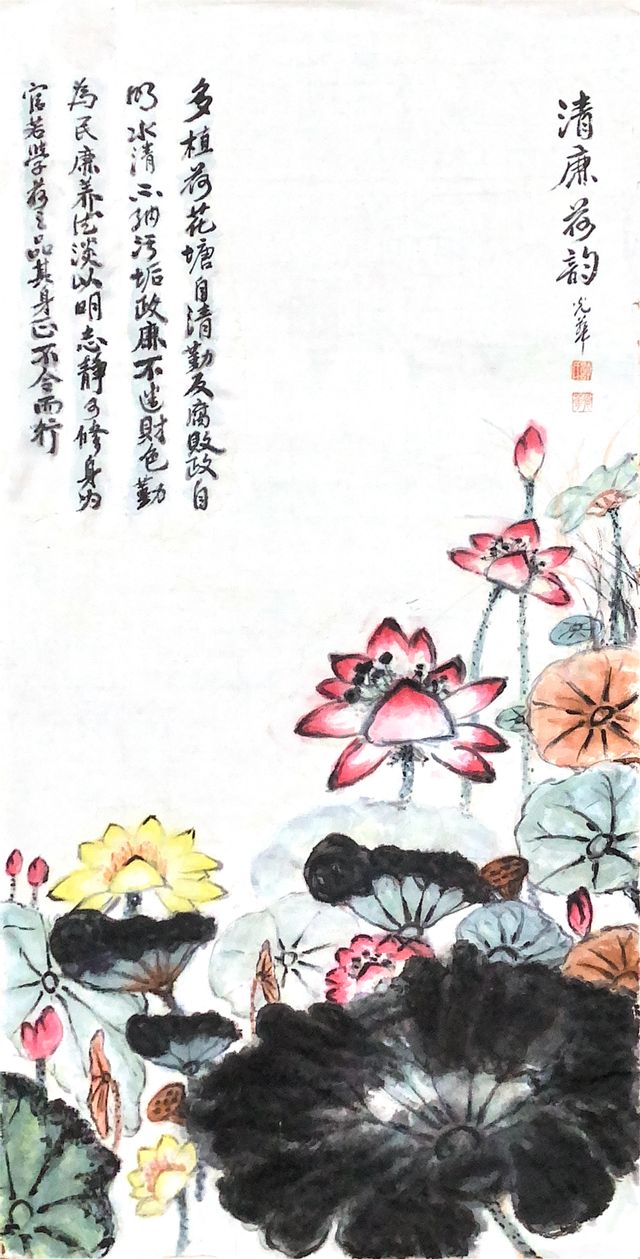 清廉荷韵
光华
多植荷花塘自清勤反腐败政自
明水清不纳污垢政廉不迷财色勤
為民廉养德淡以明志静可修身为
官若学荷之品其身正不令而行